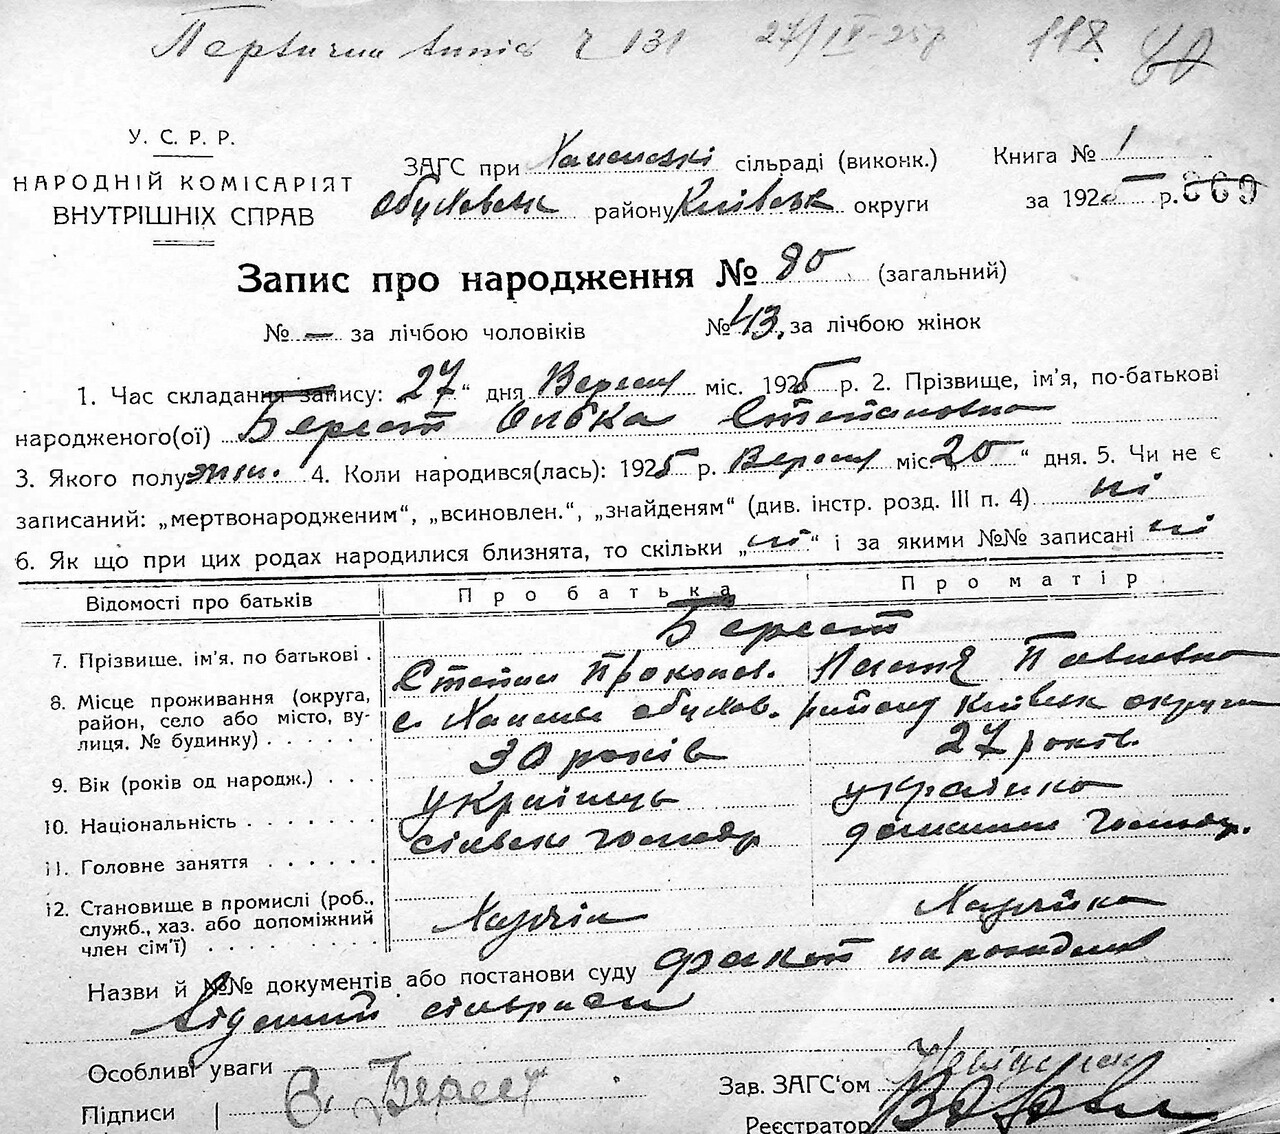 27/IV-25р 118
У. С. Р. Р.
НАРОДНІЙ КОМІСАРІЯТ
ВНУТРІШНІХ СПРАВ
ЗАГС при сільраді (виконк.)
Обухівськ району Київськ округи
Книга № 1
за 1925 р. 869
Запис про народження № 80 (загальний)
№ — за лічбою чоловіків № 43. за лічбою жінок
1. Час складання запису: 27 “ дня Вересня міс. 1925 р. 2. Прізвище, ім’я, по-батькові
народженого(ої) Берест Олька Степановна
3. Якого полу жін. 4. Коли народився(лась): 1925 р. Вересня міс. „20“ дня. 5. Чи не є
записаний: „мертвонародженим“, „всиновлен.“, „знайденям“ (див. інстр. розд. III п. 4) ні
6. Як що при цих родах народилися близнята, то скільки „ні“ і за якими №№ записані ні
Відомості про батьків Про батька Про матір
Берест
7. Прізвище, ім’я, по батькові . Степан Прокопов. Павловна
8. Місце проживання (округа,
район, село або місто, ву-
лиця, № будинку) . . . . . . с. Обухов. району Київськ округи
9. Вік (років од народж.) . . . 30 років 27 років.
10. Національність . . . . . . . українець українка
11. Головне заняття . . . . . . сільське господар домашнє господар.
12. Становище в промислі (роб.,
служб., хаз. або допоміжний
член сім’ї) . . . . . . . . . .
Назви й №№ документів або постанови суду факт народження
відомий сільраді
Особливі уваги
Підписи С. Берест
Зав. ЗАГС‘ом
Реєстратор